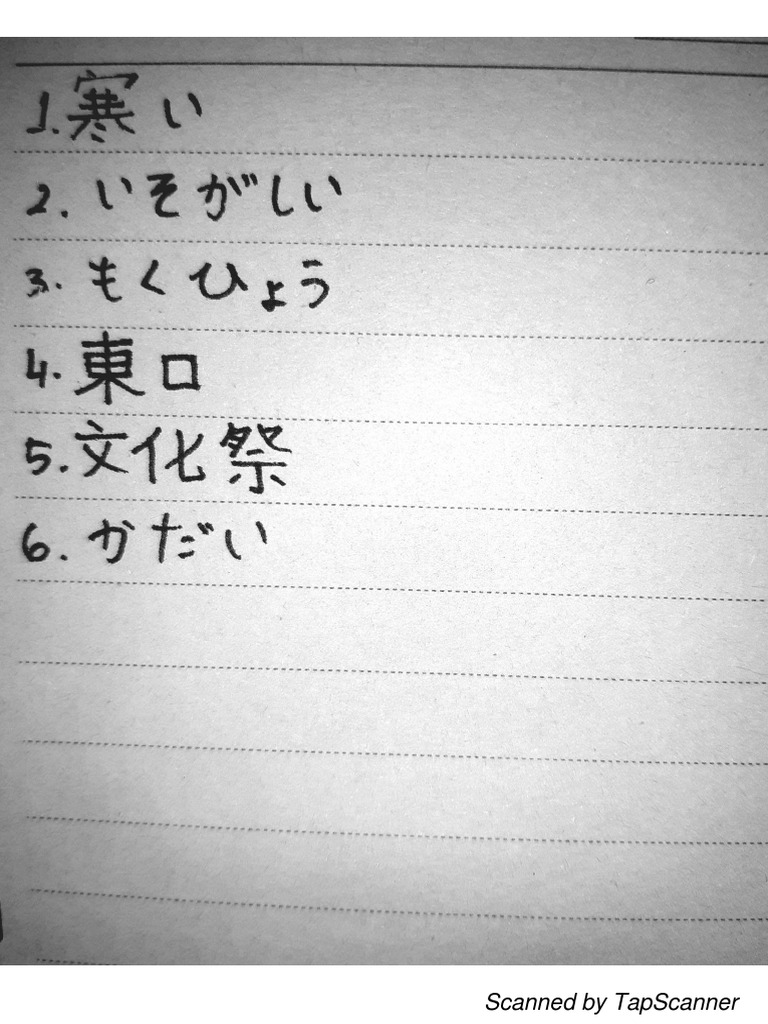 1. 寒い
2. いそがしい
3. もくひょう
4. 東口
5. 文化祭
6. かだい
Scanned by TapScanner